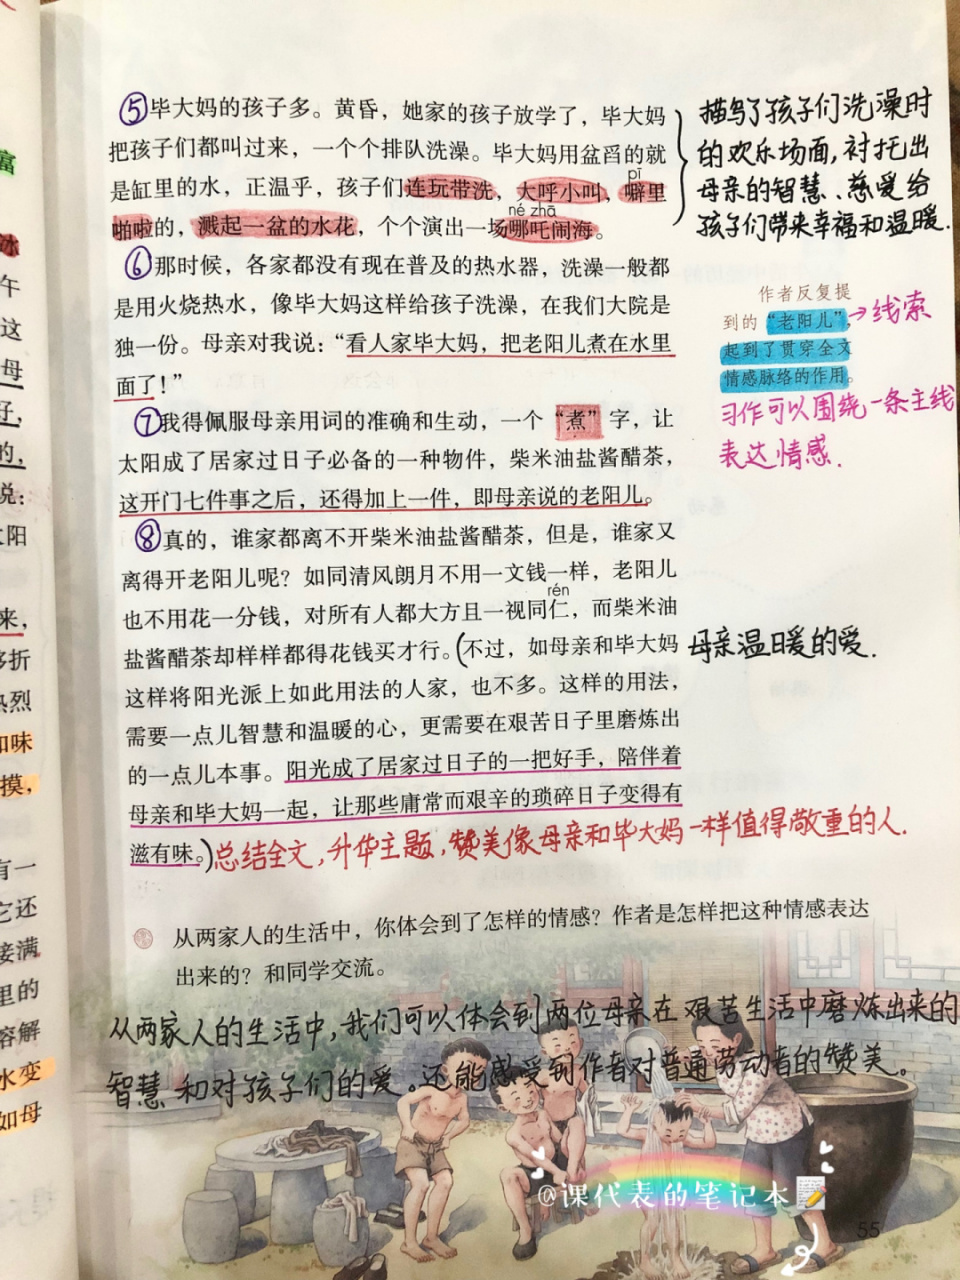 富
冰
午
这
母
好,
的,
说:
太阳
来,
够折
热烈
和味
摸,
有一
它还
接满
里的
溶解
水变
如母
⑤毕大妈的孩子多。黄昏，她家的孩子放学了，毕大妈
把孩子们都叫过来，一个个排队洗澡。毕大妈用盆舀的就
pī
是缸里的水，正温乎，孩子们连玩带洗，大呼小叫，噼里
né zhā
啪啦的，溅起一盆的水花，个个演出一场哪吒闹海。
描写了孩子们洗澡时
的欢乐场面,衬托出
母亲的智慧、慈爱给
孩子们带来幸福和温暖.
⑥那时候，各家都没有现在普及的热水器，洗澡一般都
是用火烧热水，像毕大妈这样给孩子洗澡，在我们大院是
独一份。母亲对我说：“看人家毕大妈，把老阳儿煮在水里
面了！”
作者反复提
到的“老阳儿”，→线索
起到了贯穿全文
情感脉络的作用。
习作可以围绕一条主线
表达情感.
⑦我得佩服母亲用词的准确和生动，一个“煮”字，让
太阳成了居家过日子必备的一种物件，柴米油盐酱醋茶，
这开门七件事之后，还得加上一件，即母亲说的老阳儿。
⑧真的，谁家都离不开柴米油盐酱醋茶，但是，谁家又
离得开老阳儿呢？如同清风朗月不用一文钱一样，老阳儿
rén
也不用花一分钱，对所有人都大方且一视同仁，而柴米油
盐酱醋茶却样样都得花钱买才行。(不过，如母亲和毕大妈
母亲温暖的爱.
这样将阳光派上如此用法的人家，也不多。这样的用法，
需要一点儿智慧和温暖的心，更需要在艰苦日子里磨炼出
的一点儿本事。阳光成了居家过日子的一把好手，陪伴着
母亲和毕大妈一起，让那些庸常而艰辛的琐碎日子变得有
滋有味。)总结全文,升华主题,赞美像母亲和毕大妈一样值得敬重的人.
从两家人的生活中，你体会到了怎样的情感？作者是怎样把这种情感表达
出来的？和同学交流。
从两家人的生活中,我们可以体会到两位母亲在艰苦生活中磨炼出来的
智慧和对孩子们的爱。还能感受到作者对普通劳动者的赞美。
@课代表的笔记本
55